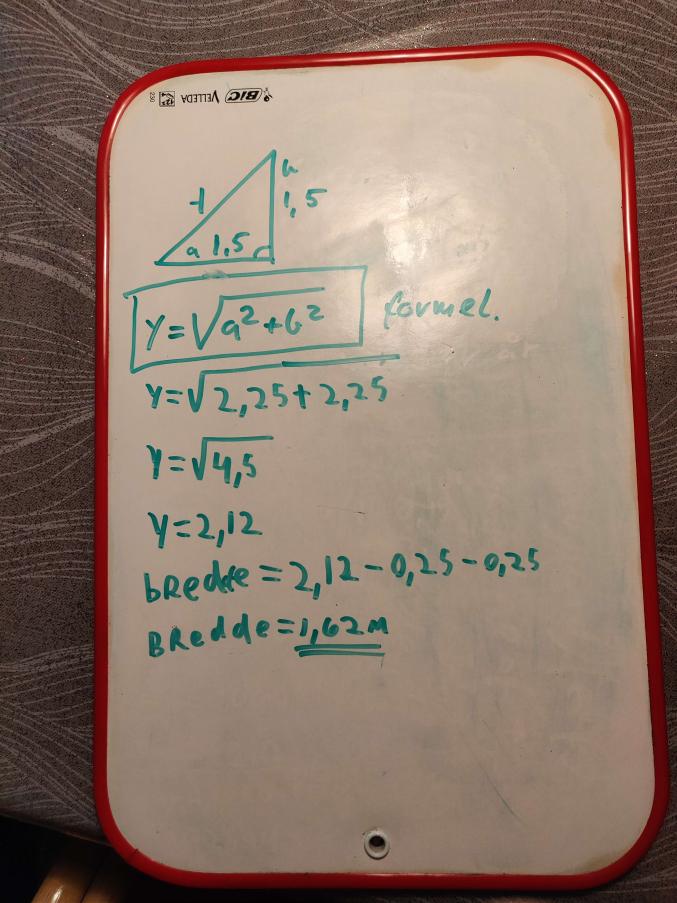 BIC VELLEDA
230
b
1,5
a 1,5
y=√a²+b² formel.
y=√2,25+2,25
y=√4,5
y=2,12
bRedde=2,12-0,25-0,25
BRedde=1,62m